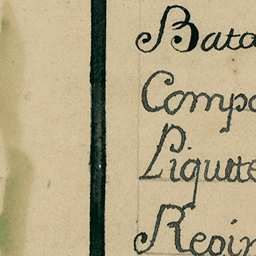 Bata
Compa
Piquete
Regim